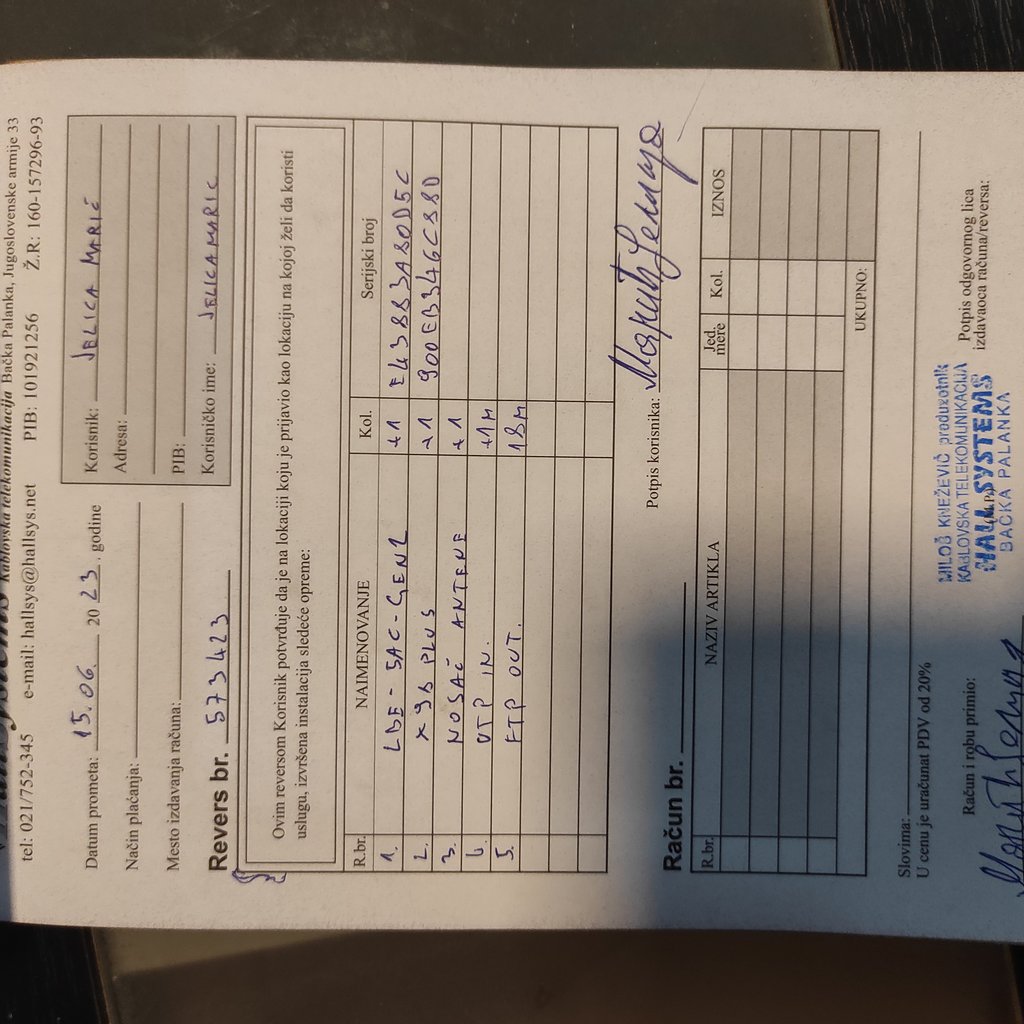 Kablovska telekomunikacija Bačka Palanka, Jugoslovenske armije 33
tel: 021/752-345 e-mail: hallsys@hallsys.net PIB: 101921256 Ž.R: 160-157296-93
Datum prometa: 15.06. 2023. godine
Način plaćanja:
Mesto izdavanja računa:
Korisnik: JELICA MARIĆ
Adresa:
PIB:
Korisničko ime: JELICAMARIC
Revers br. 573423
Ovim reversom Korisnik potvrđuje da je na lokaciji koju je prijavio kao lokaciju na kojoj želi da koristi
uslugu, izvršena instalacija sledeće opreme:
R.br. NAIMENOVANJE Kol. Serijski broj
1. LBE-5AC-GEN2 +1 E43883A80D5C
2. X9B PLUS +1 900EB346C88D
3. NOSAČ ANTENE +1
4. UTP IN. +1M
5. FTP OUT. 18M
Potpis korisnika:
Račun br.
R.br. NAZIV ARTIKLA Jed. mere Kol. IZNOS
UKUPNO:
Slovima:
U cenu je uračunat PDV od 20%
Račun i robu primio:
MILOŠ KNEŽEVIĆ preduzetnik
KABLOVSKA TELEKOMUNIKACIJA
HALL SYSTEMS
BAČKA PALANKA
Potpis odgovornog lica
izdavaoca računa/reversa: